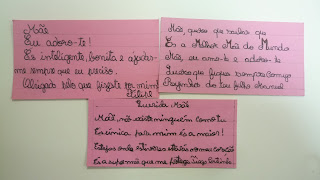 Mãe
Eu adoro-te!
És inteligente, bonita e ajudas-
me sempre que eu preciso.
Obrigado pelo que fizeste por mim!
Mãe, quero que saibas que
És a Melhor Mãe do Mundo
Mãe, eu amo-te e adoro-te
Quero que fiques sempre comigo
Beijinhos do teu filho Manuel
Querida Mãe
Mãe, não existe ninguém como tu
És única para mim és a maior!
Estejas onde estiveres estarás no meu coração
És a super mãe que me protege. Tiago